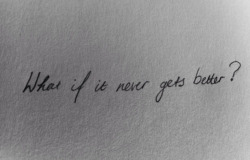 What if it never gets better?